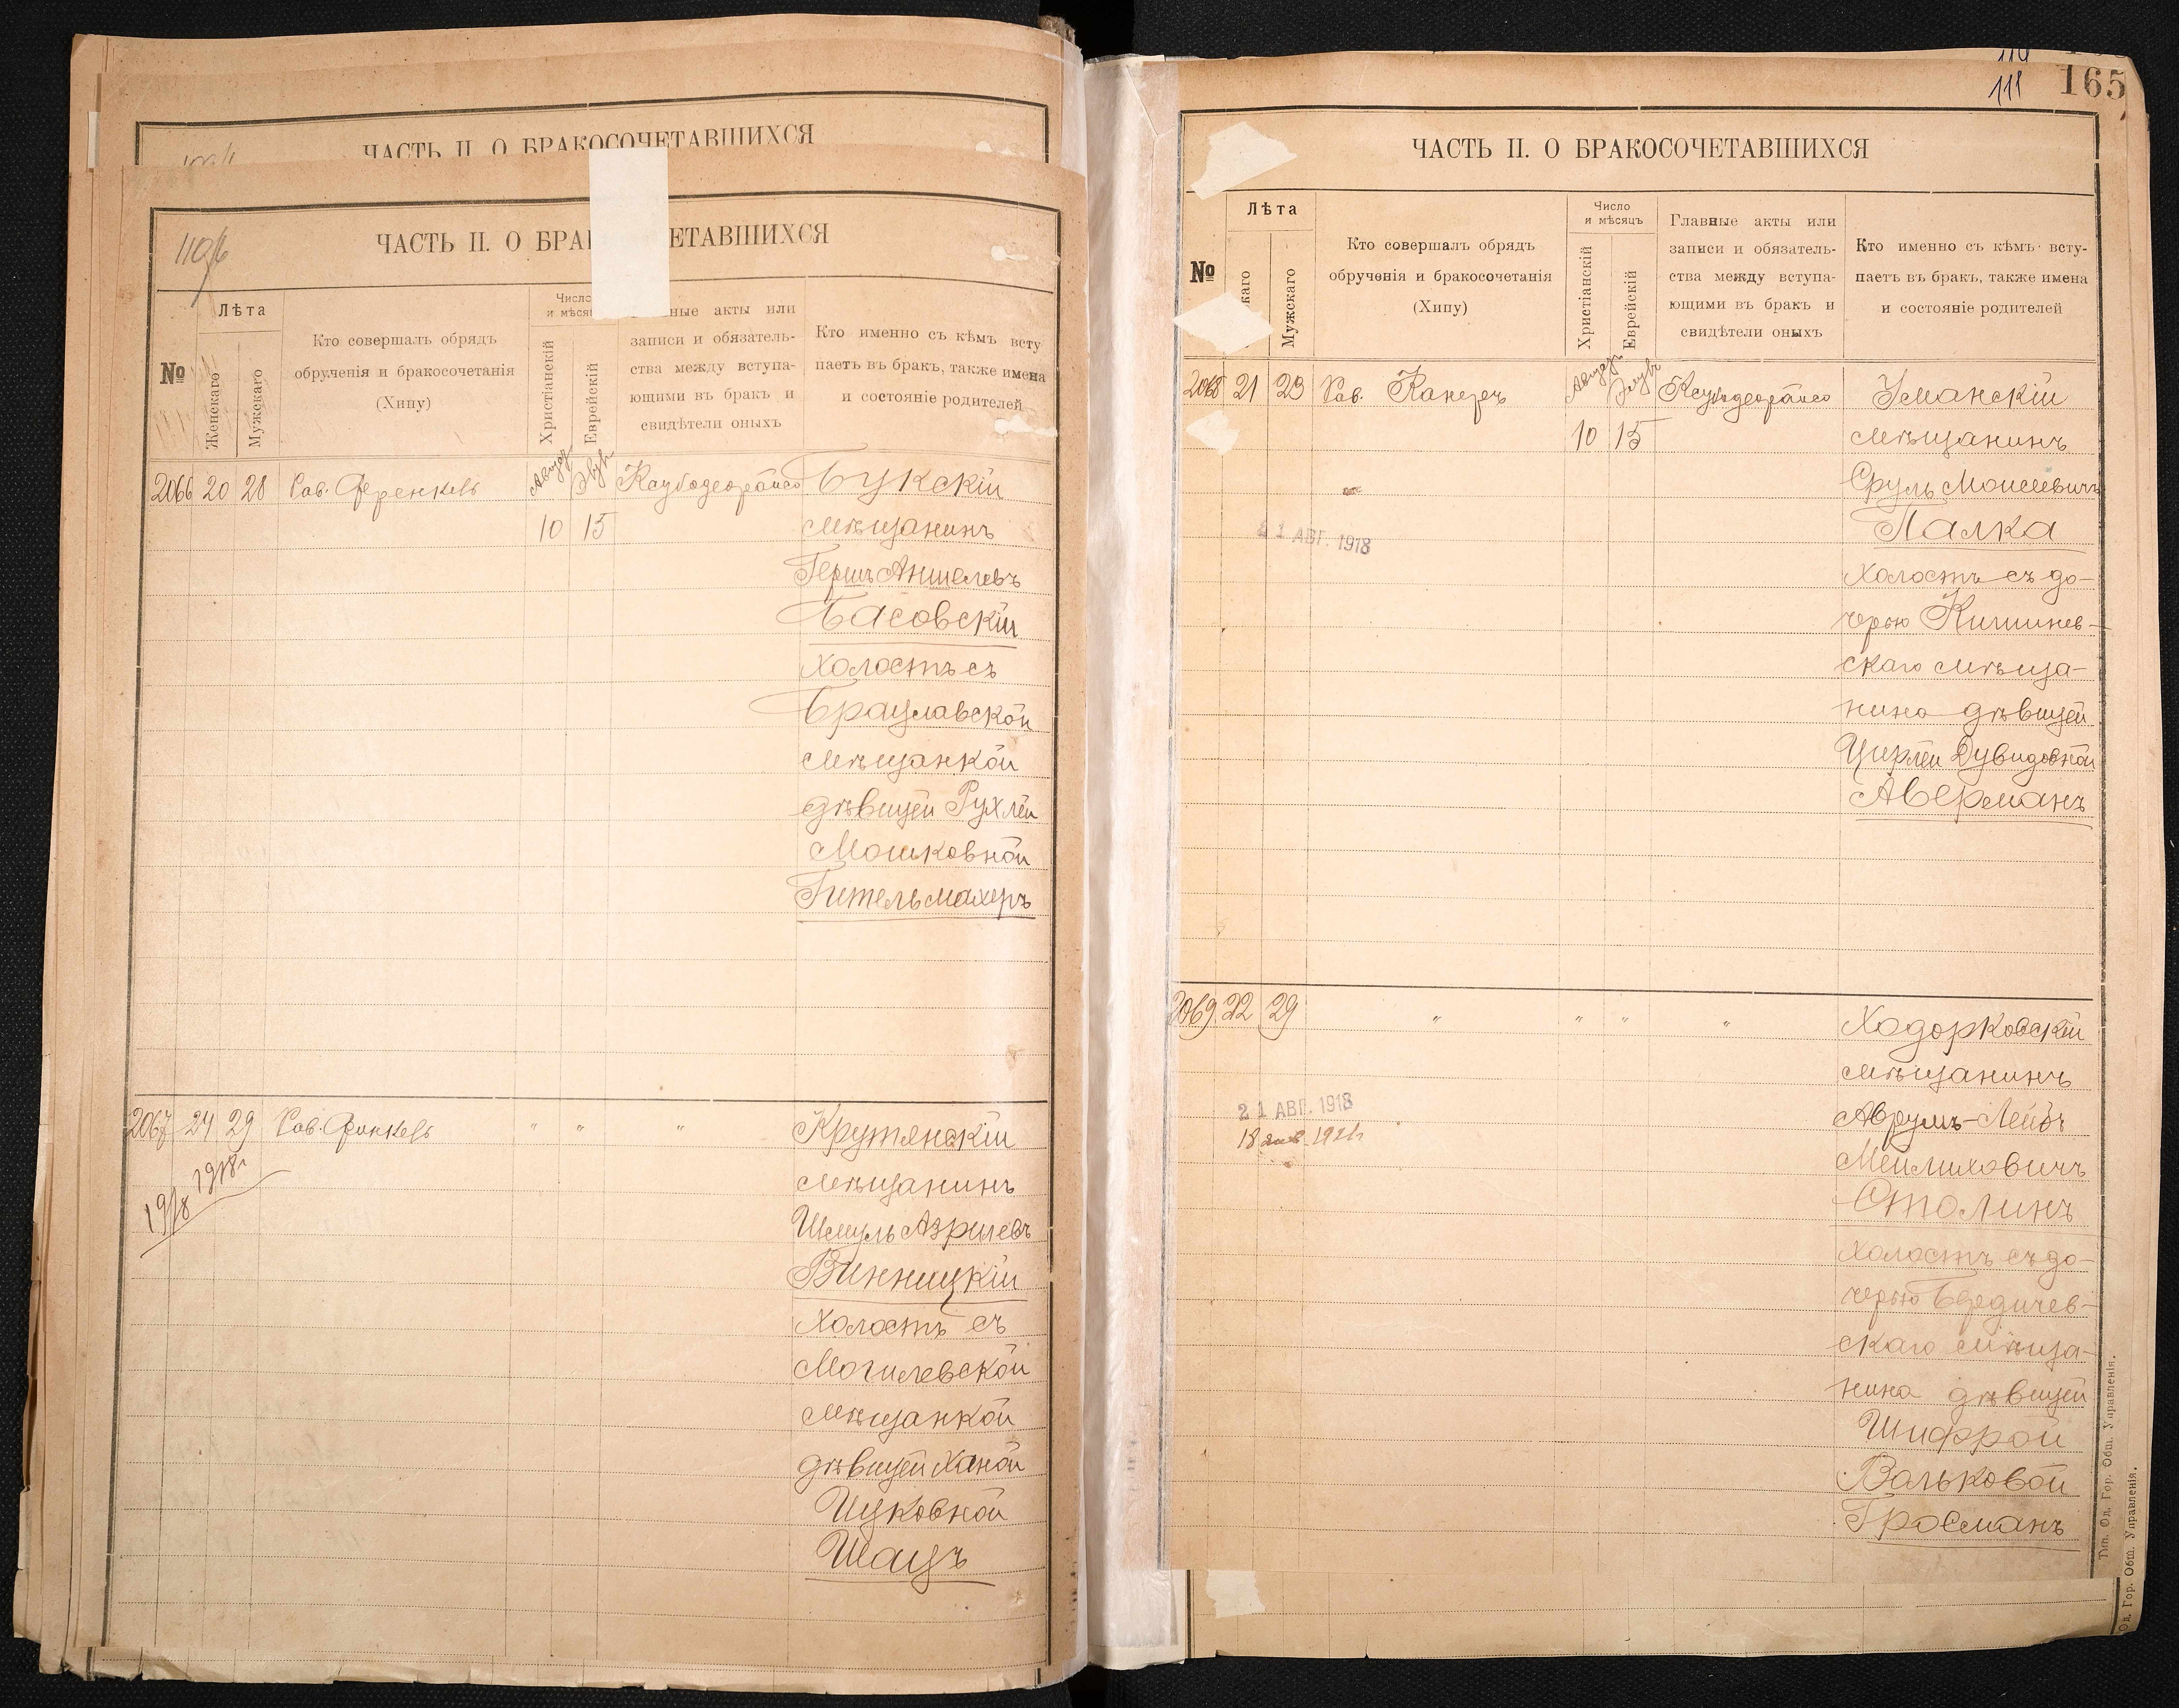 ЧАСТЬ II. О БРАКОСОЧЕТАВШИХСЯ
110/6
ЧАСТЬ II. О БРАК ЕТАВШИХСЯ
№
Лѣта
Женскаго
Мужскаго
Кто совершалъ обрядъ
обрученія и бракосочетанія
(Хипу)
Число
и мѣсяц
Христіанскій
Еврейскій
ные акты или
записи и обязатель-
ства между вступа-
ющими въ бракъ и
свидѣтели оныхъ
Кто именно съ кѣмъ всту
паетъ въ бракъ, также имена
и состояніе родителей
2066 20 28 Рав. Френкель Август 10 Элул 15
Букскій
мѣщанинъ
Гершъ Аншелевъ
Басовскій
холостъ съ
Брацлавской
мѣщанкой
дѣвицей Рухлей
Мошковной
Гительмахеръ
2067 24 29 Рав. Финкель " " "
1918 1918г
Крутянскій
мѣщанинъ
Шмуль Азрилевъ
Винницкій
холостъ съ
Могилевской
мѣщанкой
дѣвицей Ханой
Ицковной
Шацъ
110
111
165
ЧАСТЬ II. О БРАКОСОЧЕТАВШИХСЯ
№
Лѣта
каго
Мужскаго
Кто совершалъ обрядъ
обрученія и бракосочетанія
(Хипу)
Число
и мѣсяцъ
Христіанскій
Еврейскій
Главные акты или
записи и обязатель-
ства между вступа-
ющими въ бракъ и
свидѣтели оныхъ
Кто именно съ кѣмъ всту-
паетъ въ бракъ, также имена
и состояніе родителей
2068 21 23 Рав. Канеръ Августъ 10 Элулъ 15
21 АВГ. 1918
Уманскій
мѣщанинъ
Сруль Моисеевичъ
Палка
холостъ съ до-
черью Кишинев-
скаго мѣща-
нина дѣвицей
Цирлей Дувидовной
Аверманъ
2069 22 29 " " " "
21 АВГ. 1918
Ходорковскій
мѣщанинъ
Аврумъ-Лейбъ
Мейлиховичъ
Столинъ
холостъ съ до-
черью Бердичев-
скаго мѣща-
нина дѣвицей
Шифрой
Вольковой
Гросманъ
Тип. Од. Гор. Общ. Управленія.
Од. Гор. Общ. Управленія.